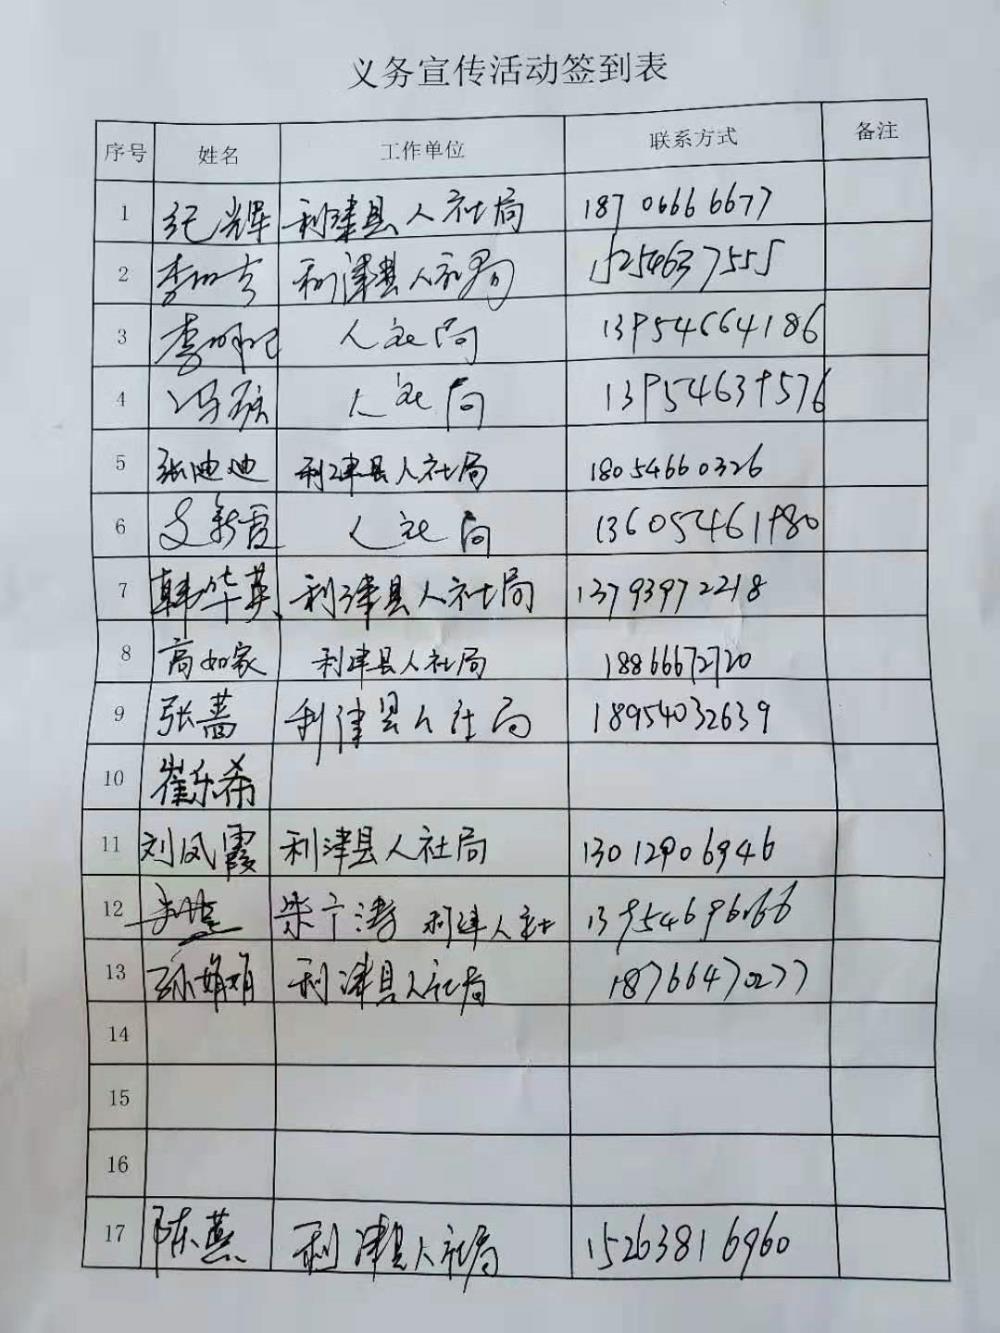 义务宣传活动签到表
序号 姓名 工作单位 联系方式 备注
1 纪辉 利津县人社局 18706666677
2 利津县人社局 15254637555
3 李明 人社局 13954664186
4 冯 人社局 13954639576
5 张迪迪 利津县人社局 18054660326
6 文新霞 人社局 13605461980
7 韩华英 利津县人社局 13793972218
8 高如家 利津县人社局 18866672720
9 张蔷 利津县人社局 18954032639
10 崔乐希
11 刘凤霞 利津县人社局 13012906946
12 利津人社 13954696166
13 孙娟娟 利津县人社局 18766470277
14
15
16
17 陈燕 利津县人社局 15263816960